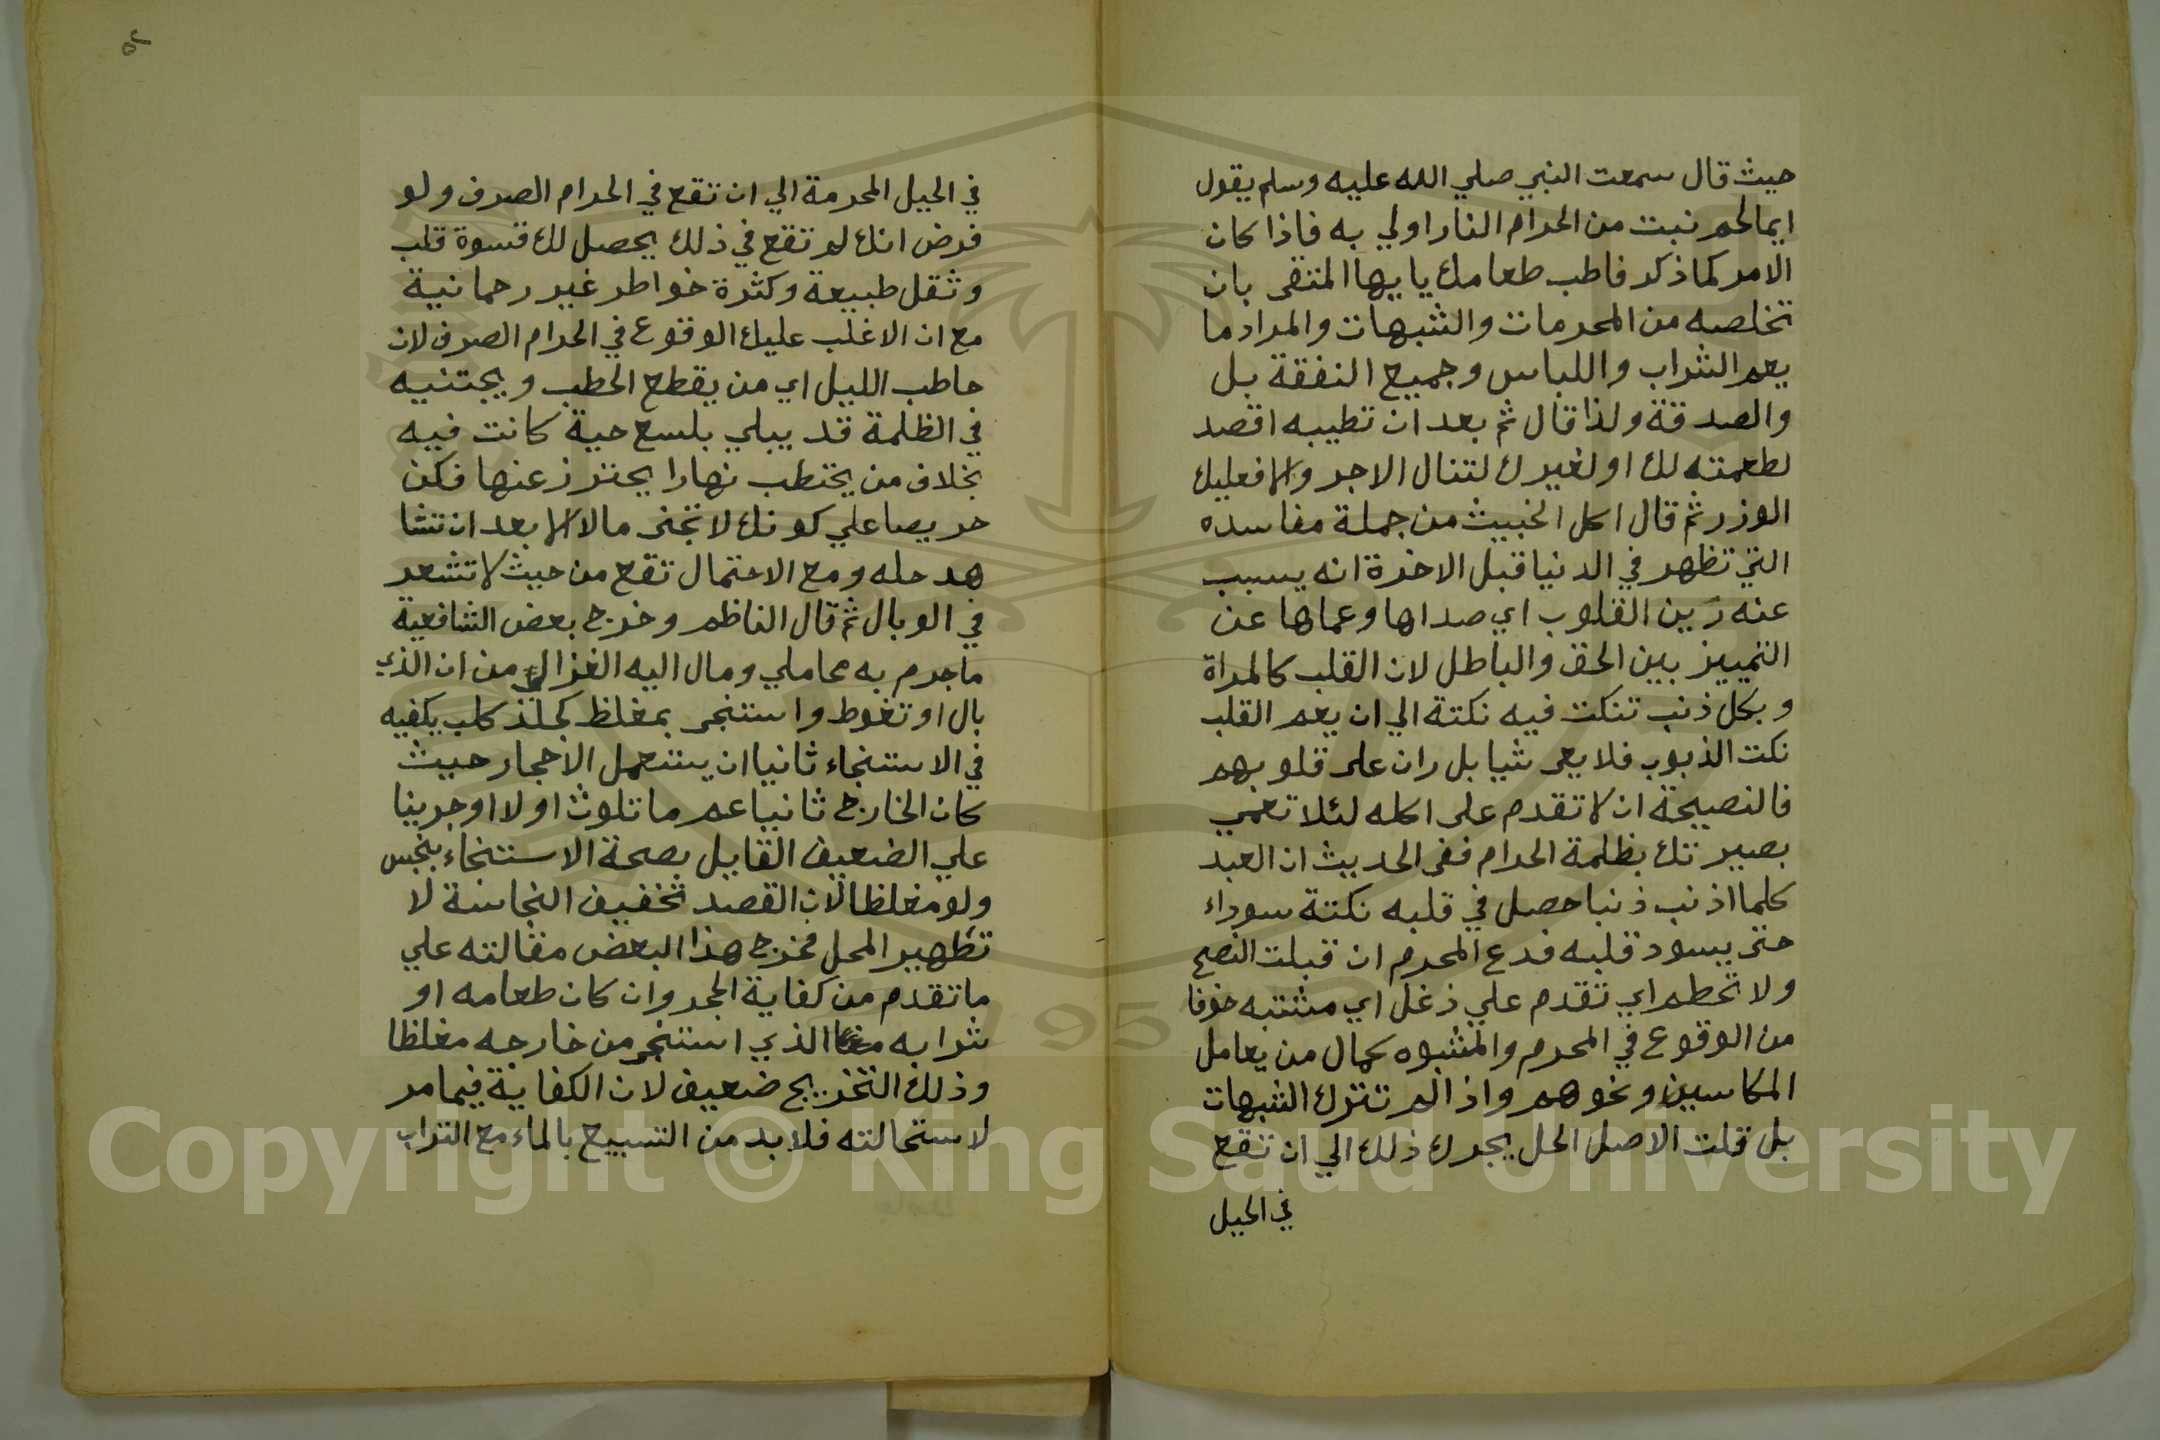 حيث قال سمعت النبي صلي الله عليه وسلم يقول
ايما لحم نبت من الحرام النار اولي به فاذا كان
الامر كما ذكر فاطب طعامك يا يها المتقي بان
تخلصه من المحرمات والشبهات والمراد ما
يعم الشراب واللباس وجميع النفقة بل
والصدقة ولذا قال ثم بعد ان تطيبه اقصد
لطعمته لك او لغيرك لتنال الاجر والا فعليك
الوزر ثم قال اكل الخبيث من جملة مفاسده
التي تظهر في الدنيا قبل الاخرة انه يسبب
عنه رَين القلوب اي صداها وعماها عن
التمييز بين الحق والباطل لان القلب كالمراة
وبكل ذنب تنكت فيه نكتة الي ان يعم القلب
نكت الذبوب فلا يعي شيا بل ران على قلوبهم
فالنصيحة ان لا تقدم على اكله لئلا تعمي
بصيرتك بظلمة الحرام ففي الحديث ان العبد
كلما اذنب ذنبا حصل في قلبه نكتة سوداء
حتى يسود قلبه فدع المحرم ان قبلت النصح
ولا تحطم اي تقدم علي ذغل اي مشتبه خوفا
من الوقوع في المحرم والمشبوه كمال من يعامل
المكاسين ونحوهم واذا لم تترك الشبهات
بل قلت الاصل الحل يجرك ذلك الي ان تقع
في الحيل
في الحيل المحرمة الي ان تقع في الحرام الصرف ولو
فرض انك لم تقع في ذلك يحصل لك قسوة قلب
وثقل طبيعة وكثرة خواطر غير رحمانية
مع ان الاغلب عليك الوقوع في الحرام الصرف لان
حاطب الليل اي من يقطع الحطب ويجتنيه
في الظلمة قد يبلي بلسع حية كانت فيه
بخلاف من يختطب نهارا يحترز عنها فكن
حريصا علي كونك لا تجنى مالا الا بعد ان تشا
هد حله ومع الاحتمال تقع من حيث لا تشعر
في الوبال ثم قال الناظم وخرج بعض الشافعية
ما جرم به محاملي ومال اليه الغزالي من ان الذي
بال او تغوط واستنجى بمغلظ كجلد كلب يكفيه
في الاستنجاء ثانيا ان يستعمل الاحجار حيث
كان الخارج ثانيا عم ما تلوث اولا او جرينا
علي الضعيف القايل بصحة الاستنجاء بنجس
ولو مغلظا لان القصد تخفيف النجاسة لا
تطهير المحل فخرج هذا البعض مقالته علي
ما تقدم من كفاية الحجر وان كان طعامه او
شرابه الذي استنجى من خارجه مغلظا
وذلك التخريج ضعيف لان الكفاية فيما مر
لاستحالته فلا بد من التسبيع بالماء مع التراب
Copyright © King Saud University